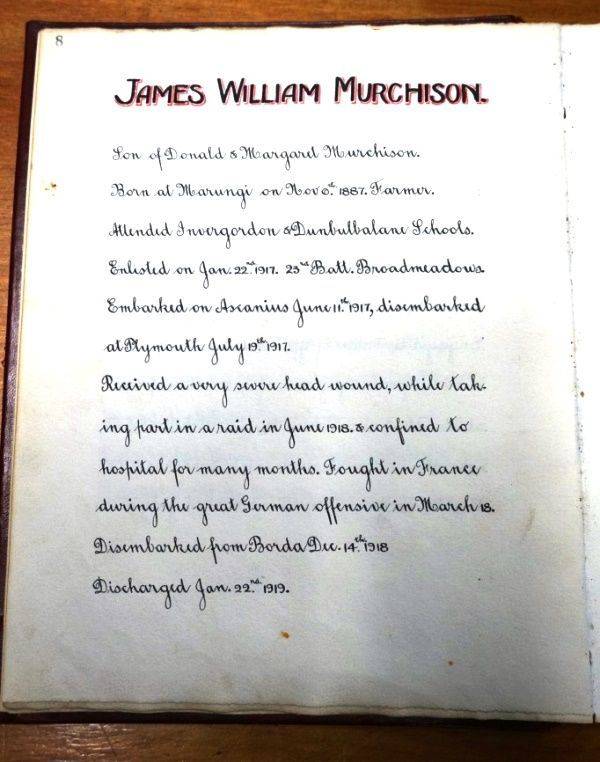 8
JAMES WILLIAM MURCHISON.
Son of Donald & Margaret Murchison.
Born at Marungi on Nov 6th. 1887. Farmer.
Attended Invergordon & Dunbulbalane Schools.
Enlisted on Jan. 22nd 1917. 23rd Batt. Broadmeadows.
Embarked on Ascanius June 11th. 1917, disembarked
at Plymouth July 19th 1917.
Received a very severe head wound, while tak-
ing part in a raid in June 1918. & confined to
hospital for many months. Fought in France
during the great German offensive in March 18.
Disembarked from Borda Dec. 14th. 1918
Discharged Jan. 22nd. 1919.